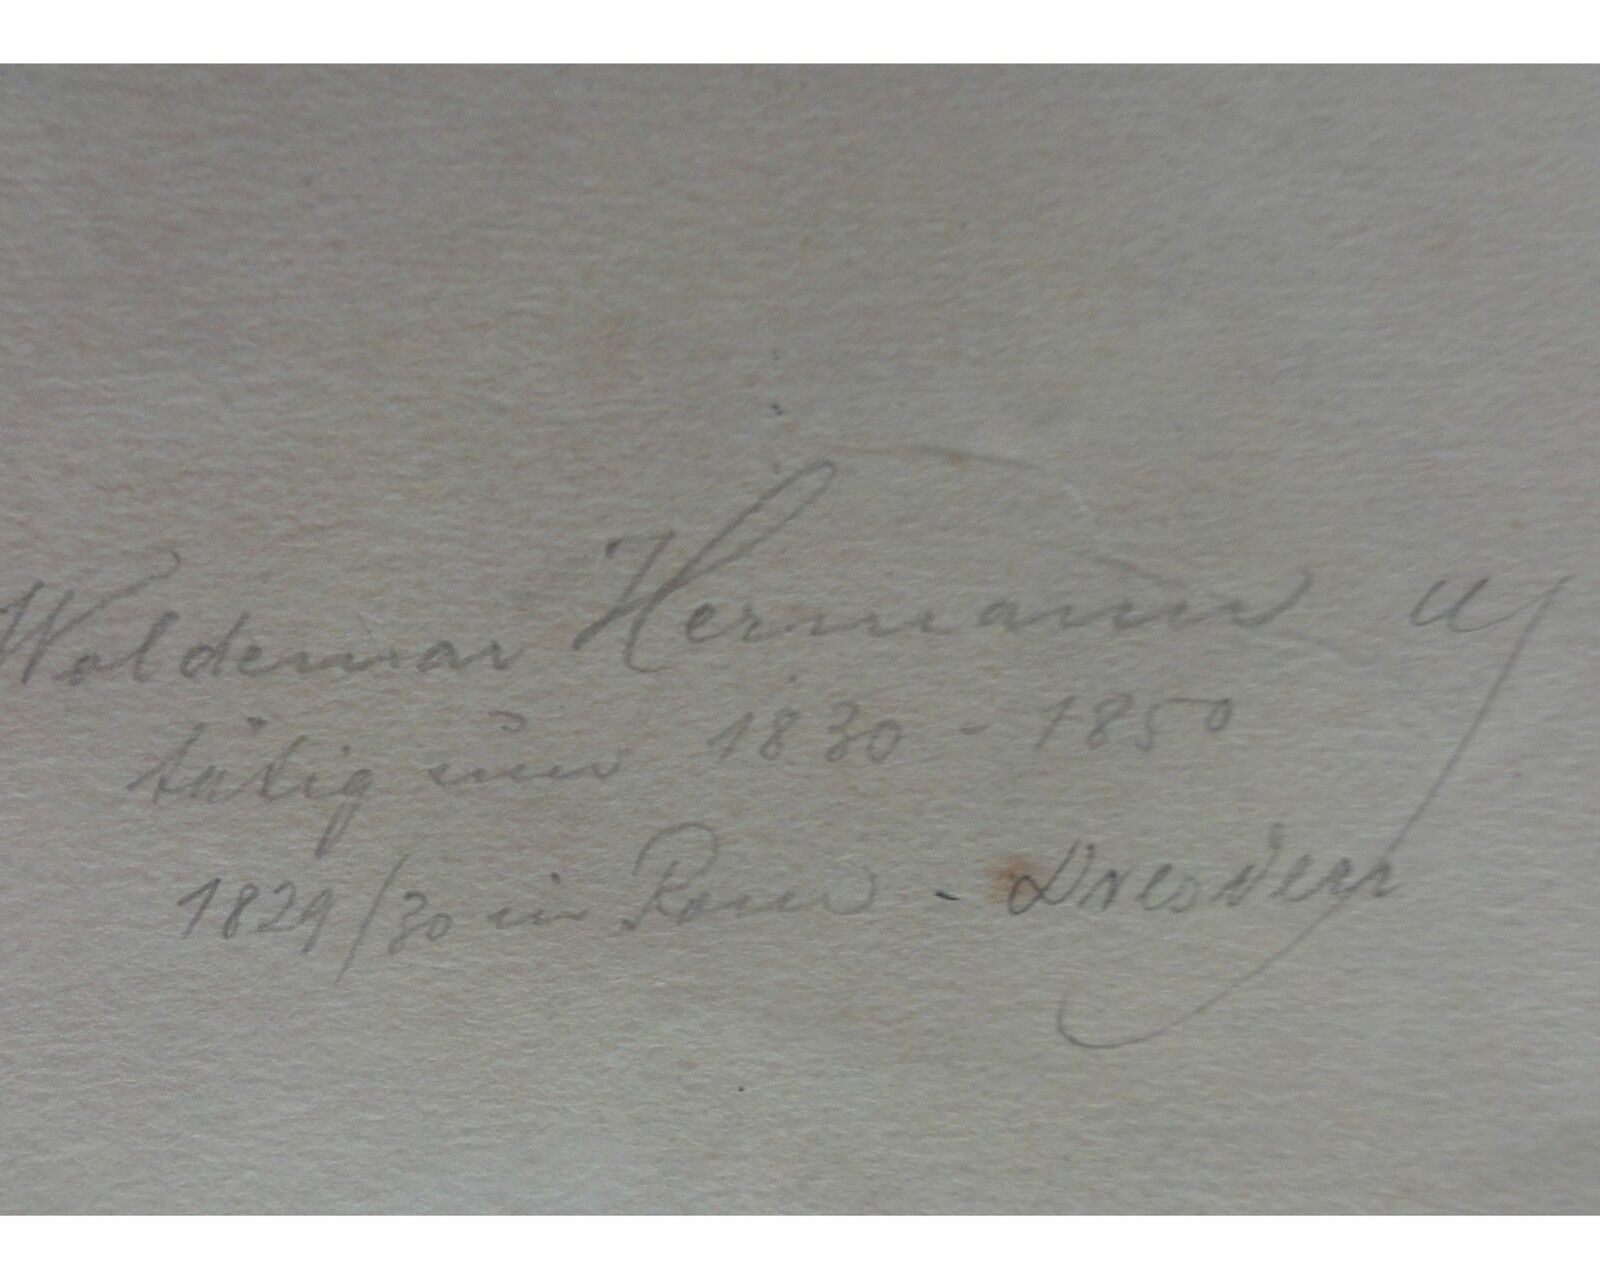 Woldemar Hermann
tätig um 1830 - 1850
1829/30 in Rom - Dresden